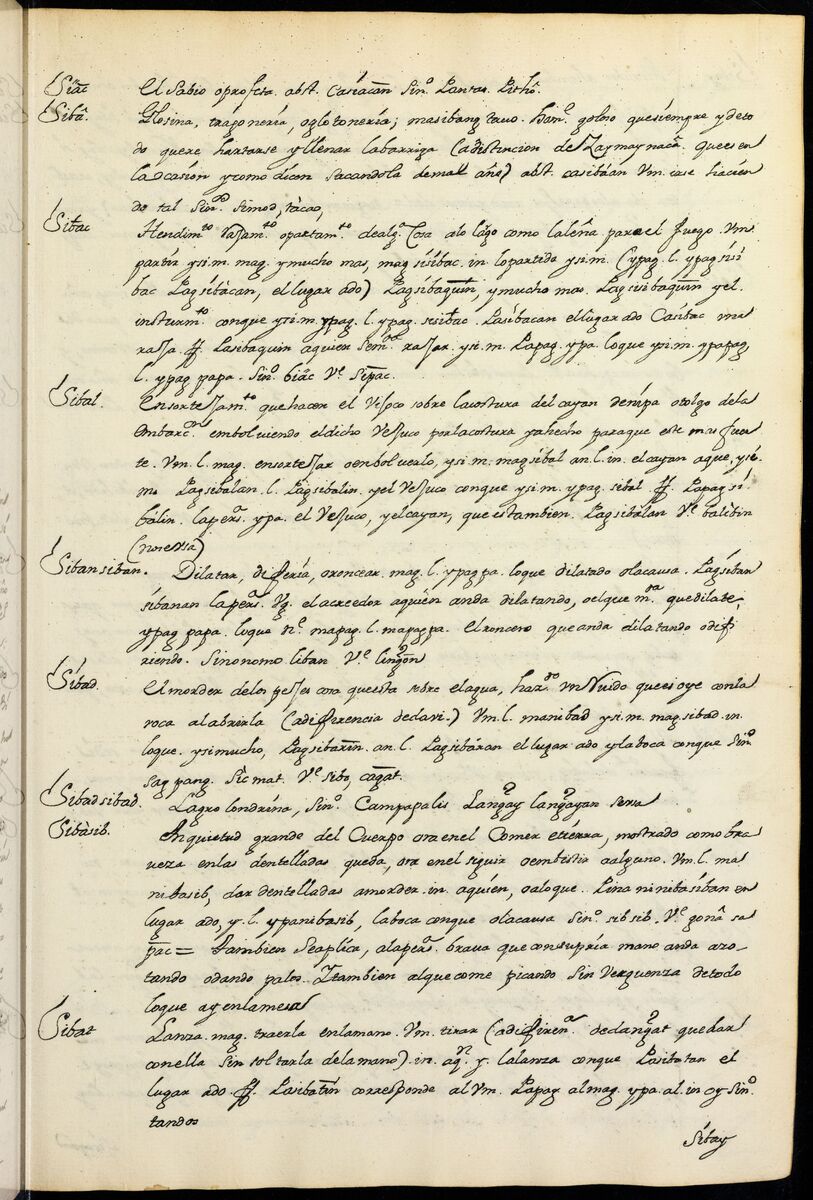 Siac El Sabio o profeta. abst. Casiacan Sin.º Pantas. Pithõ.
Sibâ. Glosina, traponería, o glotonería; masibang tavo. hom.e goloso que siempre y de to
do quere hartarse y llenar la barriga (a distincion de Zaymaynacâ, que es en
la ocasión y como dicen sacandola de mal año) abst. casibáan Vm. iase haciẽn
do tal Sin.º Simod, tacao,
Sibac Hendim.to Rajam.to o partam.to de alg.a Cosa a lo largo como la leña para el fuego. Vm.
partir y si. m. mag. y mucho mas, mag sisibac. in. lo partido y si. m. (ypag. l. ypag sisi
bac Pag sibàcan, el lugar ado) Pagsibaquin, y mucho mas. Pag sisibaquin y el.
insturm.to con que y si. m. ypag. l. ypag. sisibac. Pasibacan el lugar ado Casibac una
raja. ff. Pasibaquin a quien rajar. y si. m. Papag. ypa. lo que y si. m. ypapag
l. ypag papa. Sin.º biác V.e Sipac.
Sibal. Ensortejam.to que hacen el Vejuco sobre la costura del cayan de nipa o tolgo de la
embarc.on embolviendo el dicho Vejuco por la costura ya hecho para que este mas fuer
te. Vm. l. mag. ensortejar o enbolverlo, y si. m. mag sibal an. l. in. el cayan a que, y si.
m. Pagsibalan. l. Pagsibalin. y el Vejuco con que y si. m. ypag. sibal ff. Papag si
bálin. la pers.a ypa. el Vejuco, y el cayan, que es tambien. Pag sibálan V.e balibin
Siban siban. Dilatar, difería, o roncear. mag. l. ypag pa. lo que dilatado o la causa. Pag síban
síbanan la pers.a Vg. el acreedor a quien anda dilatando, o el que m.da que dilate,
ypag papa. lo que n.e mapag. l. mapagpa. El roncero que anda dilatando o dif
riendo. Sinonomo liban V.e lingon
Síbad. El morder de los pejes cosa que esta sobre el agua, haz.do un Ruido que se oye con la
voca al abrirla (a diferencia de cavi.) Vm. l. manibad y si. m. mag. sibad. in.
lo que. y si mucho, Pag sibarin. an. l. Pag sibáran el lugar ado y la boca con que Sin.º
sag pang. Sic mat. V.e sibo, cagat.
Sibadsibad. Pagro londrina, Sin.º Campapalis Langay langayan serra
Sibàsib. Inquietud grande del Cuerpo ora en el Comer etierra, mostrado como bra
veza en las dentelladas que da, ora en el siguir o embistir a alguno. Vm. l. ma
nibasib, dar dentelladas a morder. in. a quien, o a lo que. Pina ni nibasíban en
lugar ado, y. l. ypanibasib, la boca con que o la causa Sin.º sib sib. V.e gonâ sa
pac = Tambien Se aplica, a la pers.a brava que con su pria mano anda azo-
tando o dando palos. I tambien al que come picando sin Verguenza de todo
lo que ay en la mesa
Sibat Lanza. mag. traerla en la mano. Vm. tirar (a difiren.a de dangat que dar
con ella sin soltarla de la mano). in. aq.n y. la lanza con que Pasibatan el
lugar ado. ff. Pasibatin corresponde al Vm. Papag al mag. ypa. al. in oy sin.º
tandos
Síbay